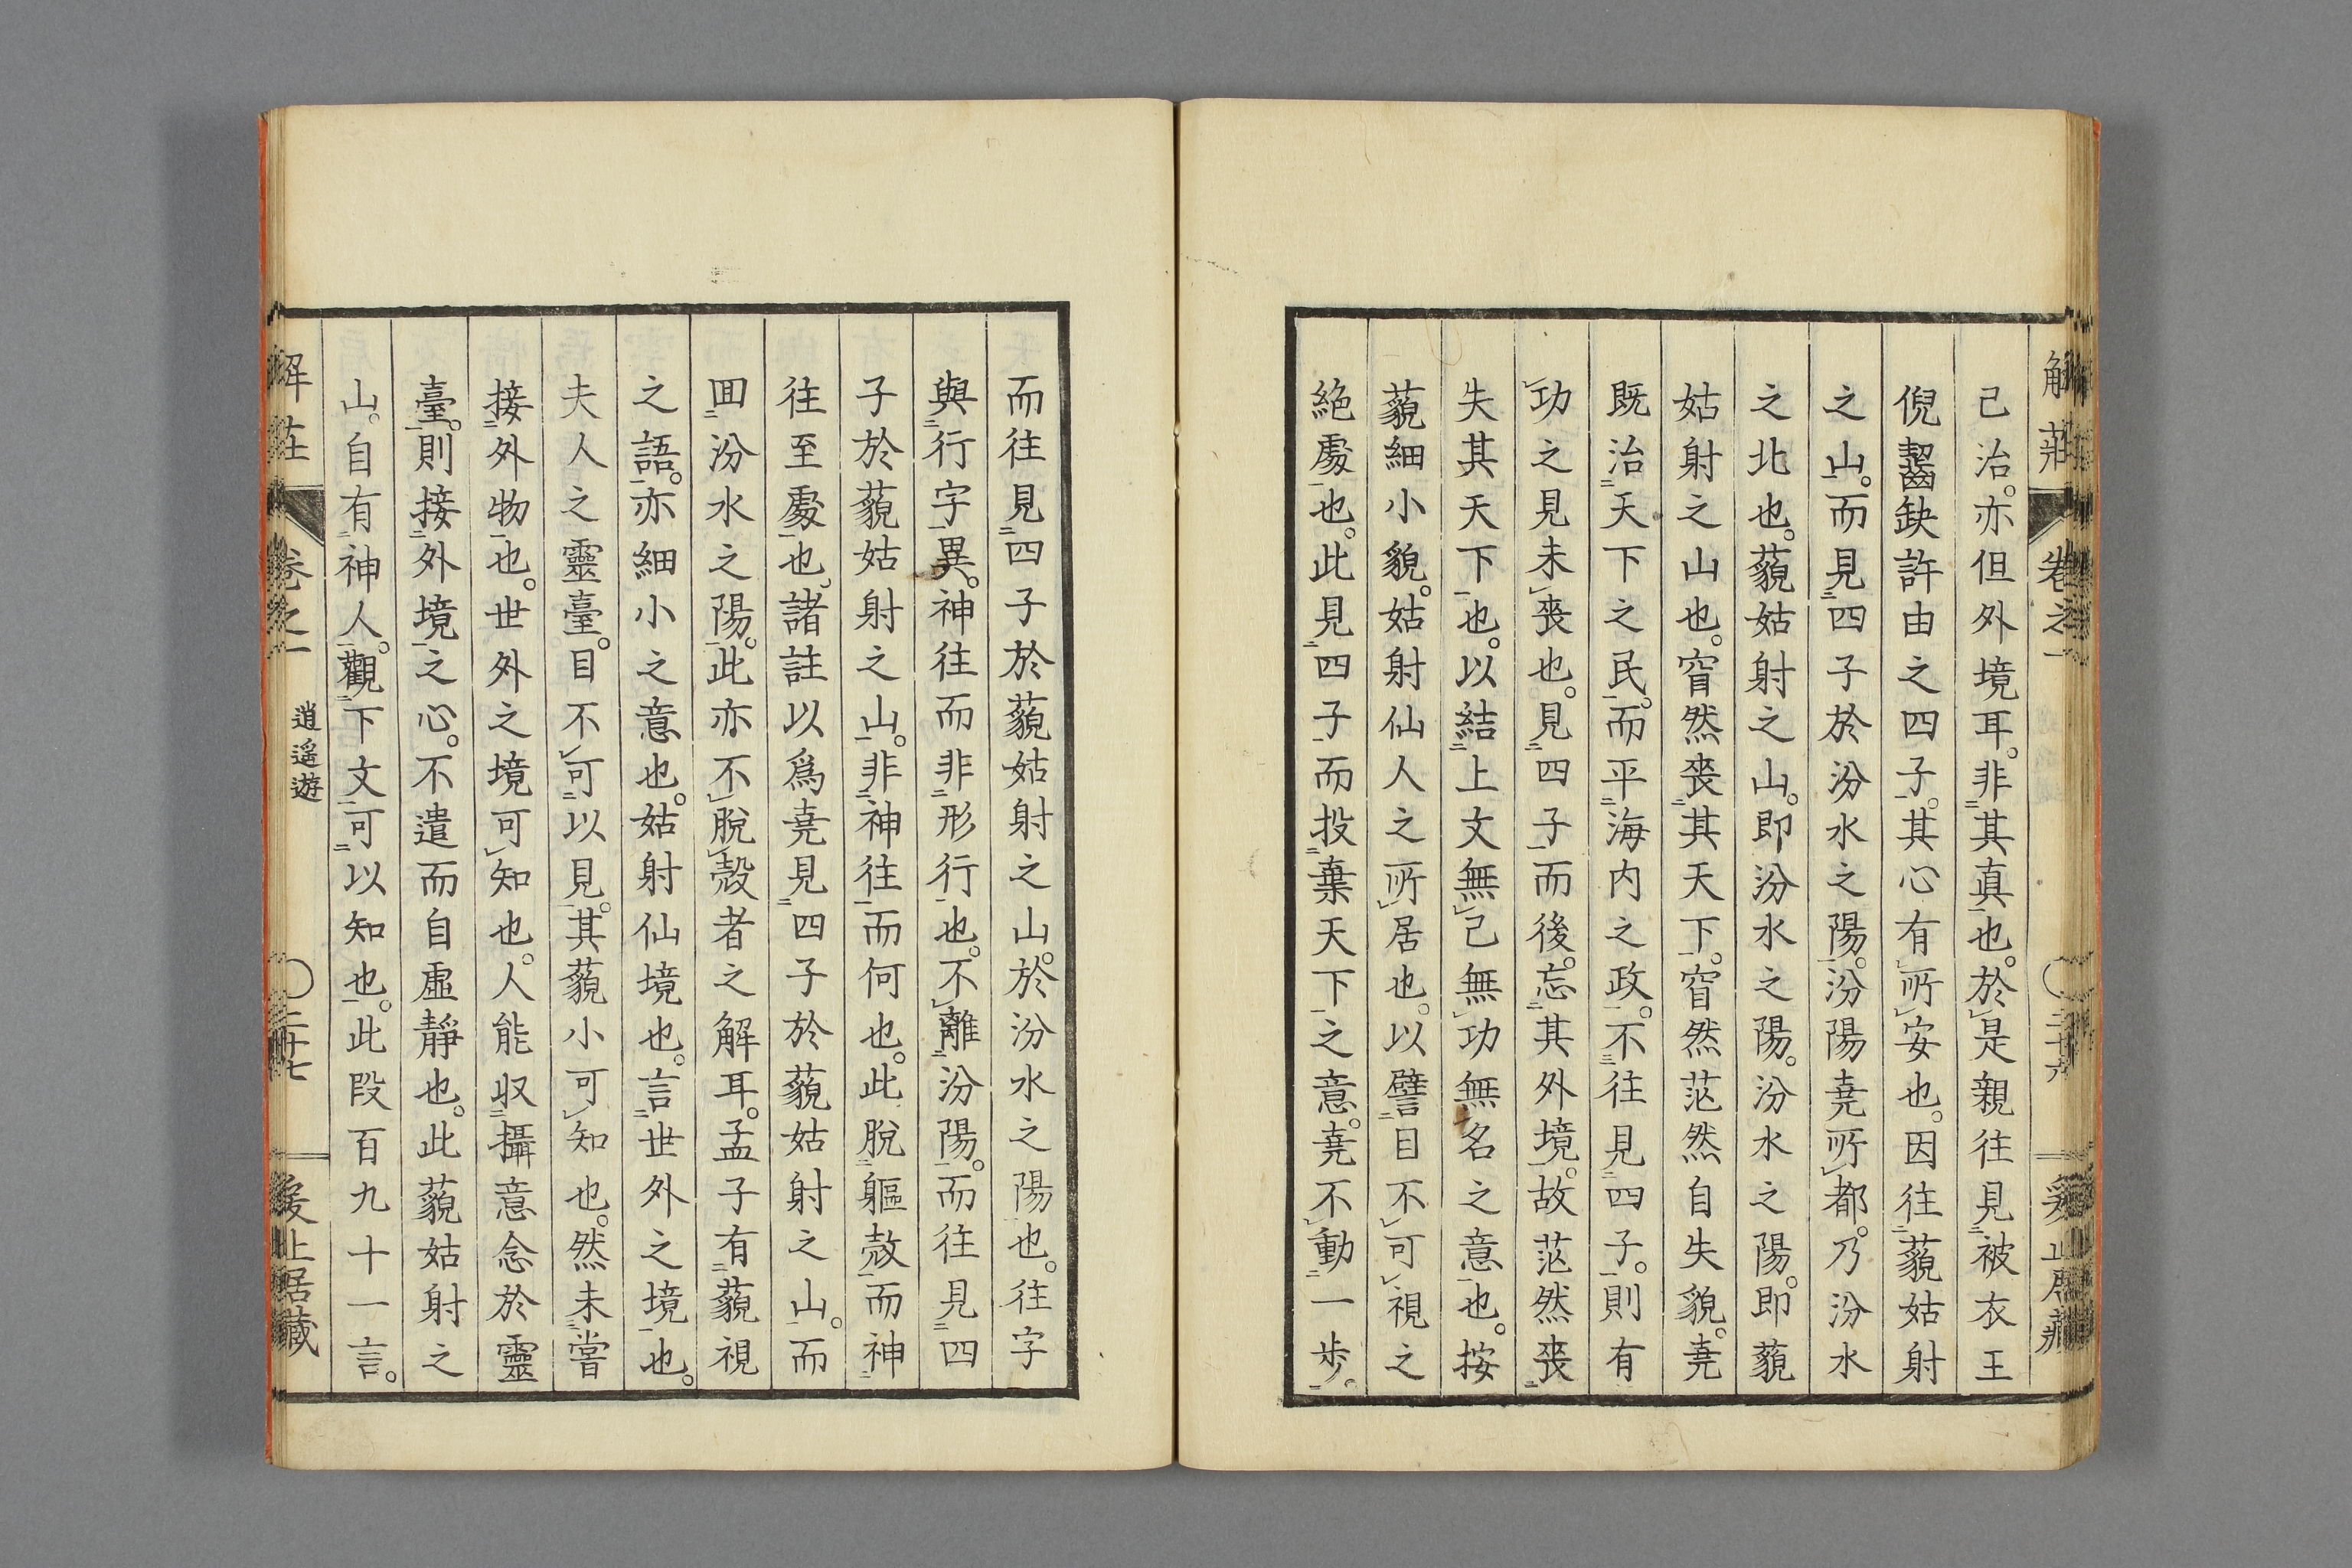 解莊 卷之一 〇二十六 爰止居藏
己治。亦但外境耳。非其真也。於是親往見被衣王
倪齧缺許由之四子。其心有所安也。因往藐姑射
之山。而見四子於汾水之陽。汾陽堯所都。乃汾水
之北也。藐姑射之山。即汾水之陽。汾水之陽。即藐
姑射之山也。窅然喪其天下。窅然茫然自失貌。堯
既治天下之民。而平海内之政。不往見四子。則有
功之見未喪也。見四子而後。忘其外境。故茫然喪
失其天下也。以結上文無己無功無名之意也。按
藐細小貌。姑射仙人之所居也。以譬目不可視之
絕處也。此見四子而投棄天下之意。堯不動一步。
而往見四子於藐姑射之山。於汾水之陽也。往字
與行字異。神往而非形行也。不離汾陽。而往見四
子於藐姑射之山。非神往而何也。此脫軀殼而神
往至處也。諸註以爲堯見四子於藐姑射之山。而
囬汾水之陽。此亦不脫殼者之解耳。孟子有藐視
之語。亦細小之意也。姑射仙境也。言世外之境也。
夫人之靈臺。目不可以見。其藐小可知也。然未嘗
接外物也。世外之境可知也。人能収攝意念於靈
臺。則接外境之心。不遣而自虛靜也。此藐姑射之
山。自有神人。觀下文可以知也。此段百九十一言。
解莊 卷之一 逍遥遊 〇二十七 爰止居藏